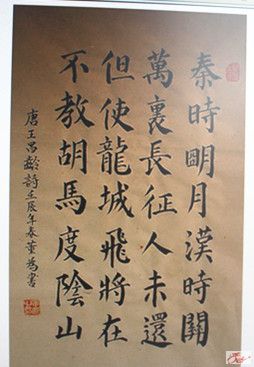 秦時明月漢時關
萬裏長征人未還
但使龍城飛將在
不教胡馬度陰山
唐王昌齡詩壬辰年春董為書